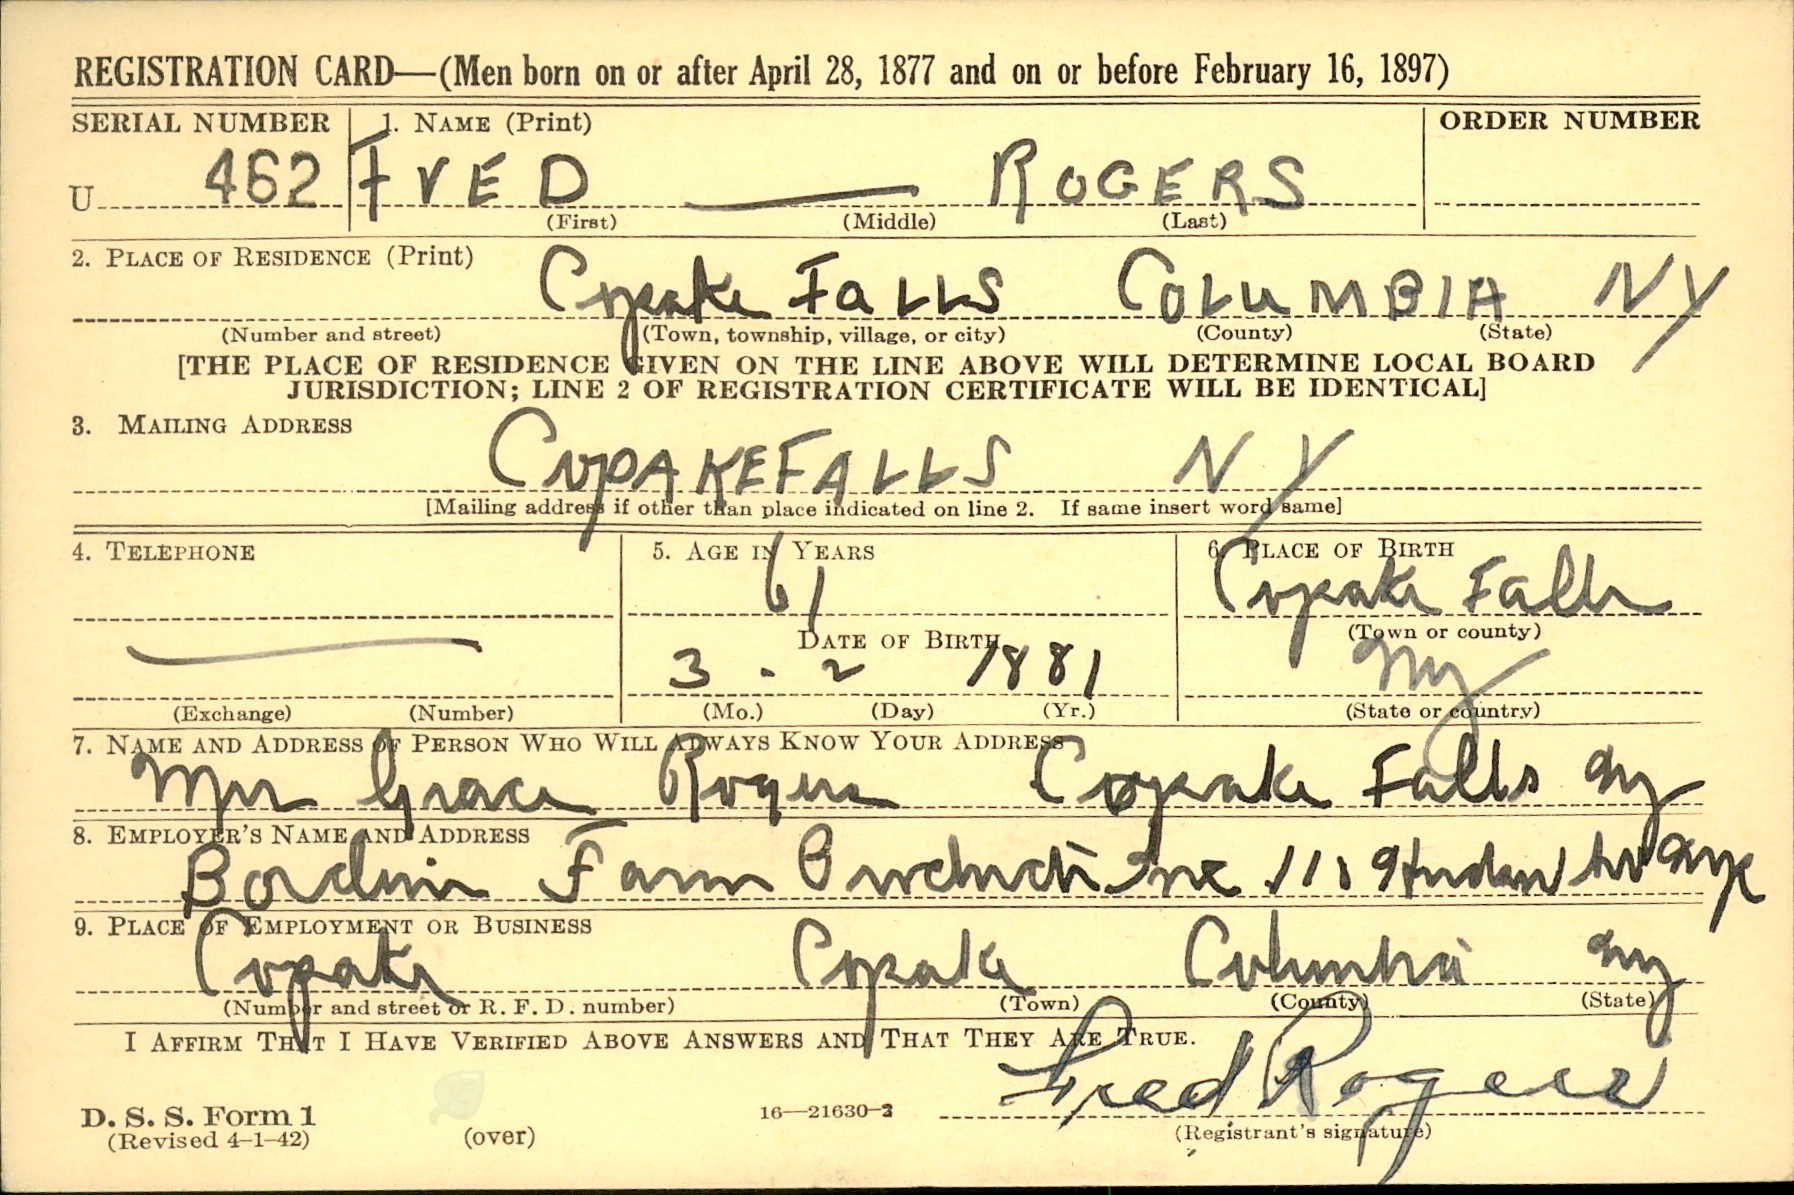 REGISTRATION CARD—(Men born on or after April 28, 1877 and on or before February 16, 1897)
SERIAL NUMBER 1. NAME (Print) ORDER NUMBER
U 462 FrED — ROGERS
(First) (Middle) (Last)
2. PLACE OF RESIDENCE (Print)
Copake FaLLS COLuMBIA NY
(Number and street) (Town, township, village, or city) (County) (State)
[THE PLACE OF RESIDENCE GIVEN ON THE LINE ABOVE WILL DETERMINE LOCAL BOARD
JURISDICTION; LINE 2 OF REGISTRATION CERTIFICATE WILL BE IDENTICAL]
3. MAILING ADDRESS
CopAKE FALLS NY
[Mailing address if other than place indicated on line 2. If same insert word same]
4. TELEPHONE 5. AGE IN YEARS 6. PLACE OF BIRTH
61 Copake Falls
DATE OF BIRTH (Town or county)
— 3 - 2 1881 Ny
(Exchange) (Number) (Mo.) (Day) (Yr.) (State or country)
7. NAME AND ADDRESS OF PERSON WHO WILL ALWAYS KNOW YOUR ADDRESS
Mrs Grace Rogers Copake Falls Ny
8. EMPLOYER'S NAME AND ADDRESS
Farm Products Inc Hudson
9. PLACE OF EMPLOYMENT OR BUSINESS
Copake Copake Columbia Ny
(Number and street or R. F. D. number) (Town) (County) (State)
I AFFIRM THAT I HAVE VERIFIED ABOVE ANSWERS AND THAT THEY ARE TRUE.
Fred Rogers
D. S. S. Form 1 16—21630-2
(Revised 4-1-42) (over) (Registrant's signature)